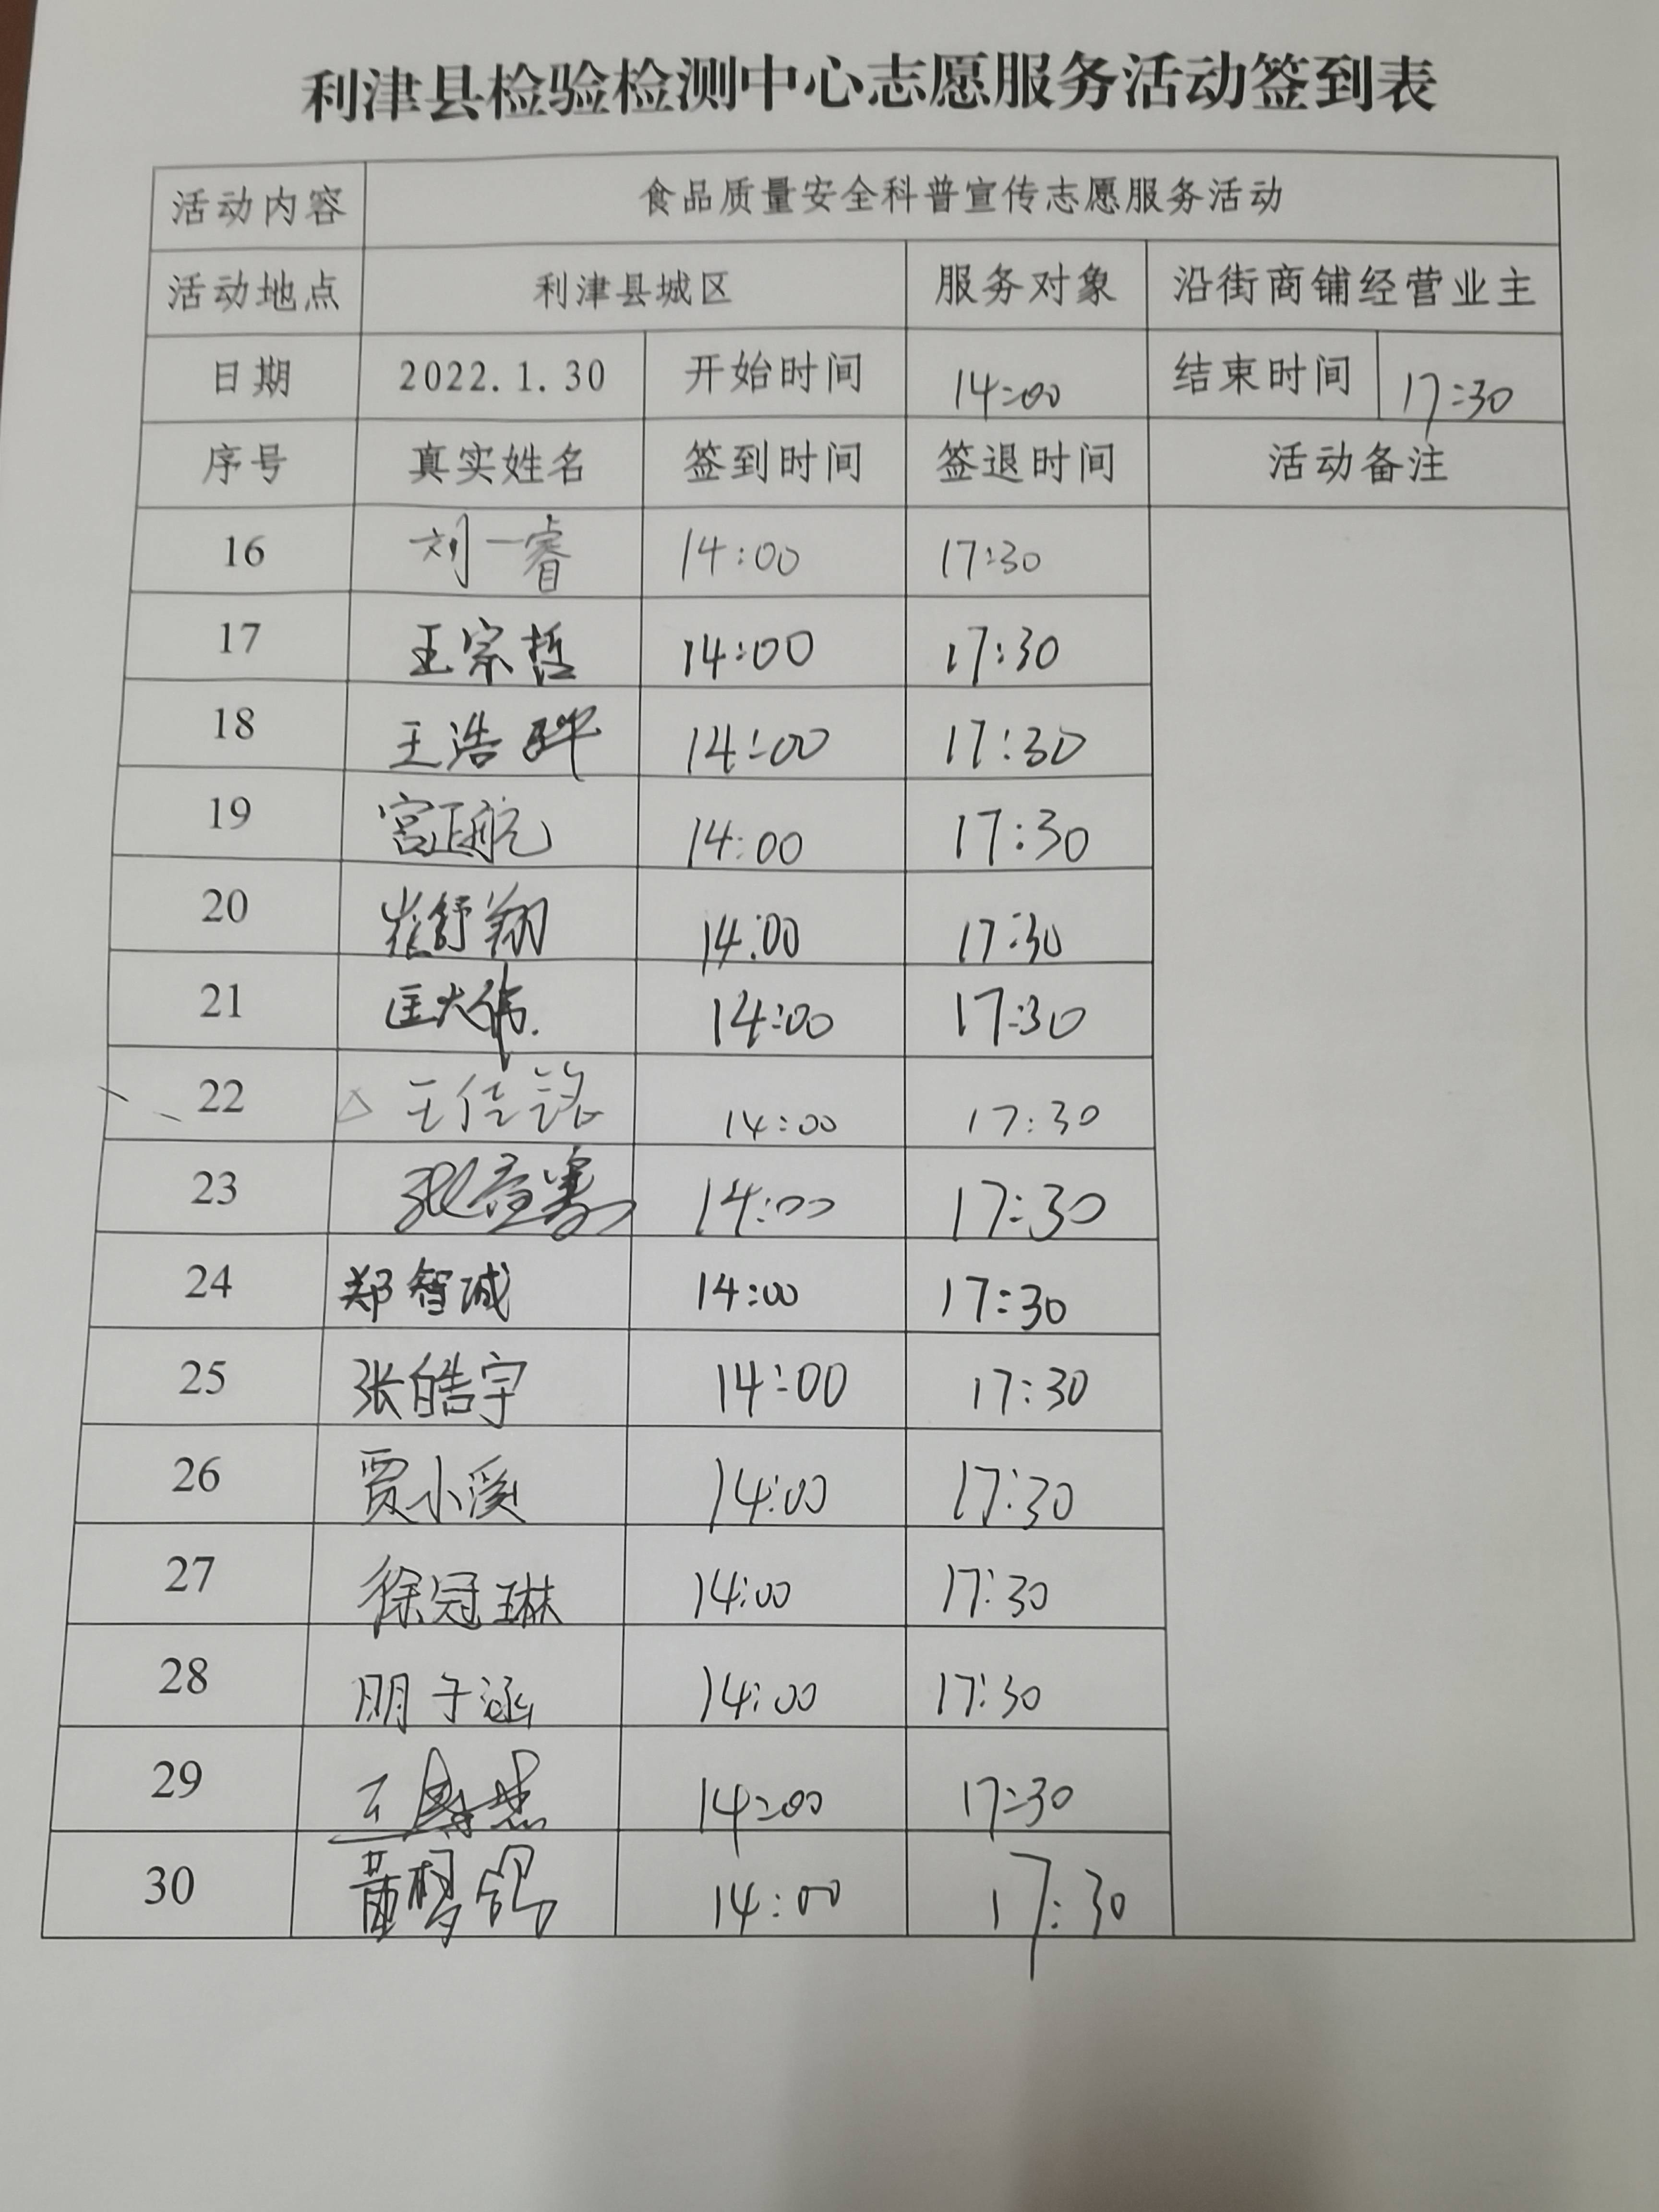 利津县检验检测中心志愿服务活动签到表
活动内容 食品质量安全科普宣传志愿服务活动
活动地点 利津县城区 服务对象 沿街商铺经营业主
日期 2022.1.30 开始时间 14:00 结束时间 17:30
序号 真实姓名 签到时间 签退时间 活动备注
16 刘一睿 14:00 17:30
17 王宗哲 14:00 17:30
18 王浩 14:00 17:30
19 宫正航 14:00 17:30
20 崔舒翔 14:00 17:30
21 匡大伟 14:00 17:30
22 王佳铭 14:00 17:30
23 张 14:00 17:30
24 郑智诚 14:00 17:30
25 张皓宇 14:00 17:30
26 贾小溪 14:00 17:30
27 徐冠琳 14:00 17:30
28 朋于涵 14:00 17:30
29 王 14:00 17:30
30 董梦鸽 14:00 17:30